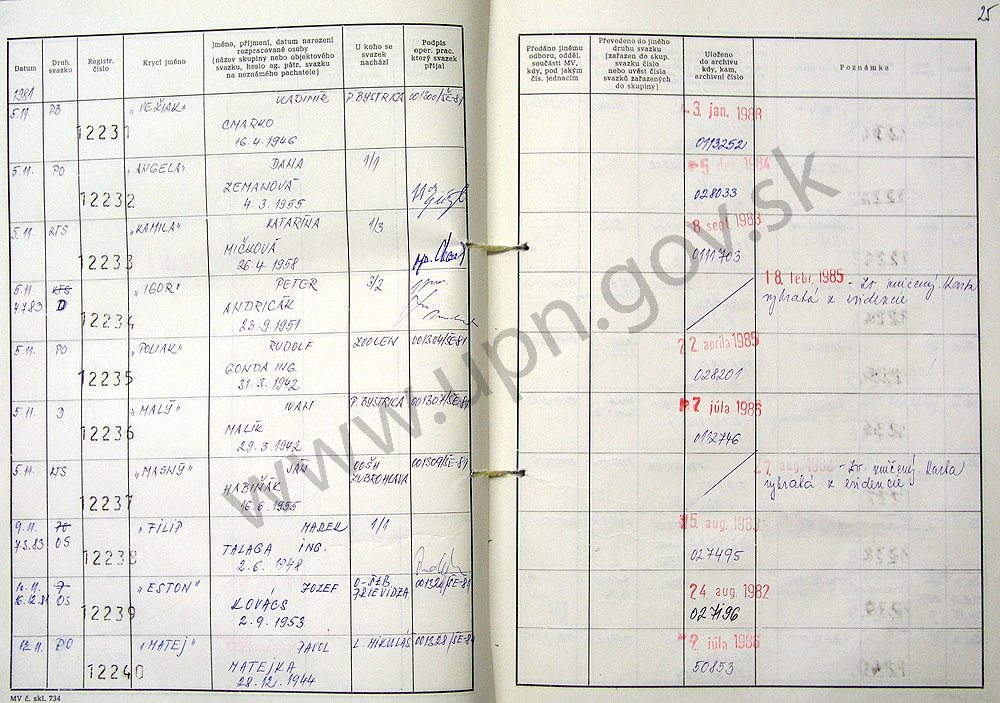 25
Datum
Druh svazku
Registr. číslo
Krycí jméno
Jméno, příjmení, datum narození rozpracované osoby (název skupiny nebo objektového svazku, heslo ag. pátr. svazku na neznámého pachatele)
U koho se svazek nachází
Podpis oper. prac. který svazek přijal
Předáno jinému odboru, odděl. součásti MV, kdy, pod jakým čís. jednacím
Převedeno do jiného druhu svazku (zařazen do skup. svazku číslo nebo uvést čísla svazků zařazených do skupiny)
Uloženo do archivu kdy, kam, archivní číslo
Poznámka
1981
5.11. 12231 VLADIMÍR P. BYSTRICA 001300/ŠE-81 3. jan. 1988
CMARKO
16.4.1946 0113252
5.11. PO 12232 "ANGELA" DANA 1/1 1984
ZEMANOVÁ
4.3.1955 028033
5.11. KTS 12233 "KAMILA" KATARÍNA 1/3 8. sept. 1983
MIČKOVÁ
26.4.1958 0111703
5.11. KTS 12234 "IGOR" PETER 3/2 18. febr. 1985 - Zv. zničený. Karta
4.7.83 D ANDRIČÁK vybratá z evidencie
23.9.1951
5.11. PO 12235 RUDOLF ZVOLEN 001304/ŠE-81 22. apríla 1985
GONDA ING.
31.3.1942 028201
5.11. D 12236 "MALÝ" IVAN P. BYSTRICA 001307/ŠE-81 7. júla 1986
MALÍK
29.3.1942 0112746
5.11. KTS 12237 "MASNÝ" JÁN OOŠH 001309/ŠE-81 27. aug. - Zv. zničený. Karta
HABINÁK DUBROHLAVA vybratá z evidencie
16.6.1955
9.11. 12238 "FILIP" MAREK 1/1 aug. 1983
7.3.83 OS TALAGA ING.
2.6.1948 027495
10.11. 12239 "ESTON" JOZEF O-ŠtB 001320/ŠE-81 24. aug. 1982
16.12.81 OS KOVÁCS PRIEVIDZA
2.9.1953 027196
12.11. PO 12240 "MATEJ" PAVOL L. MIKULÁŠ júla 1986
MATEJKA
28.12.1944 50853
MV č. skl. 734
www.upn.gov.sk